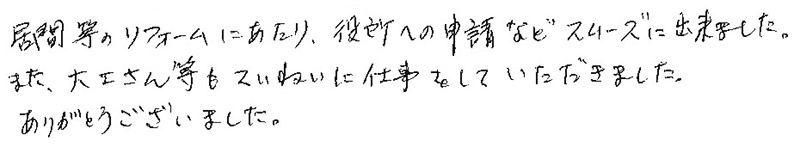 居間等のリフォームにあたり、役所への申請などスムーズに出来ました。
また、大工さん等もていねいに仕事をしていただきました。
ありがとうございました。